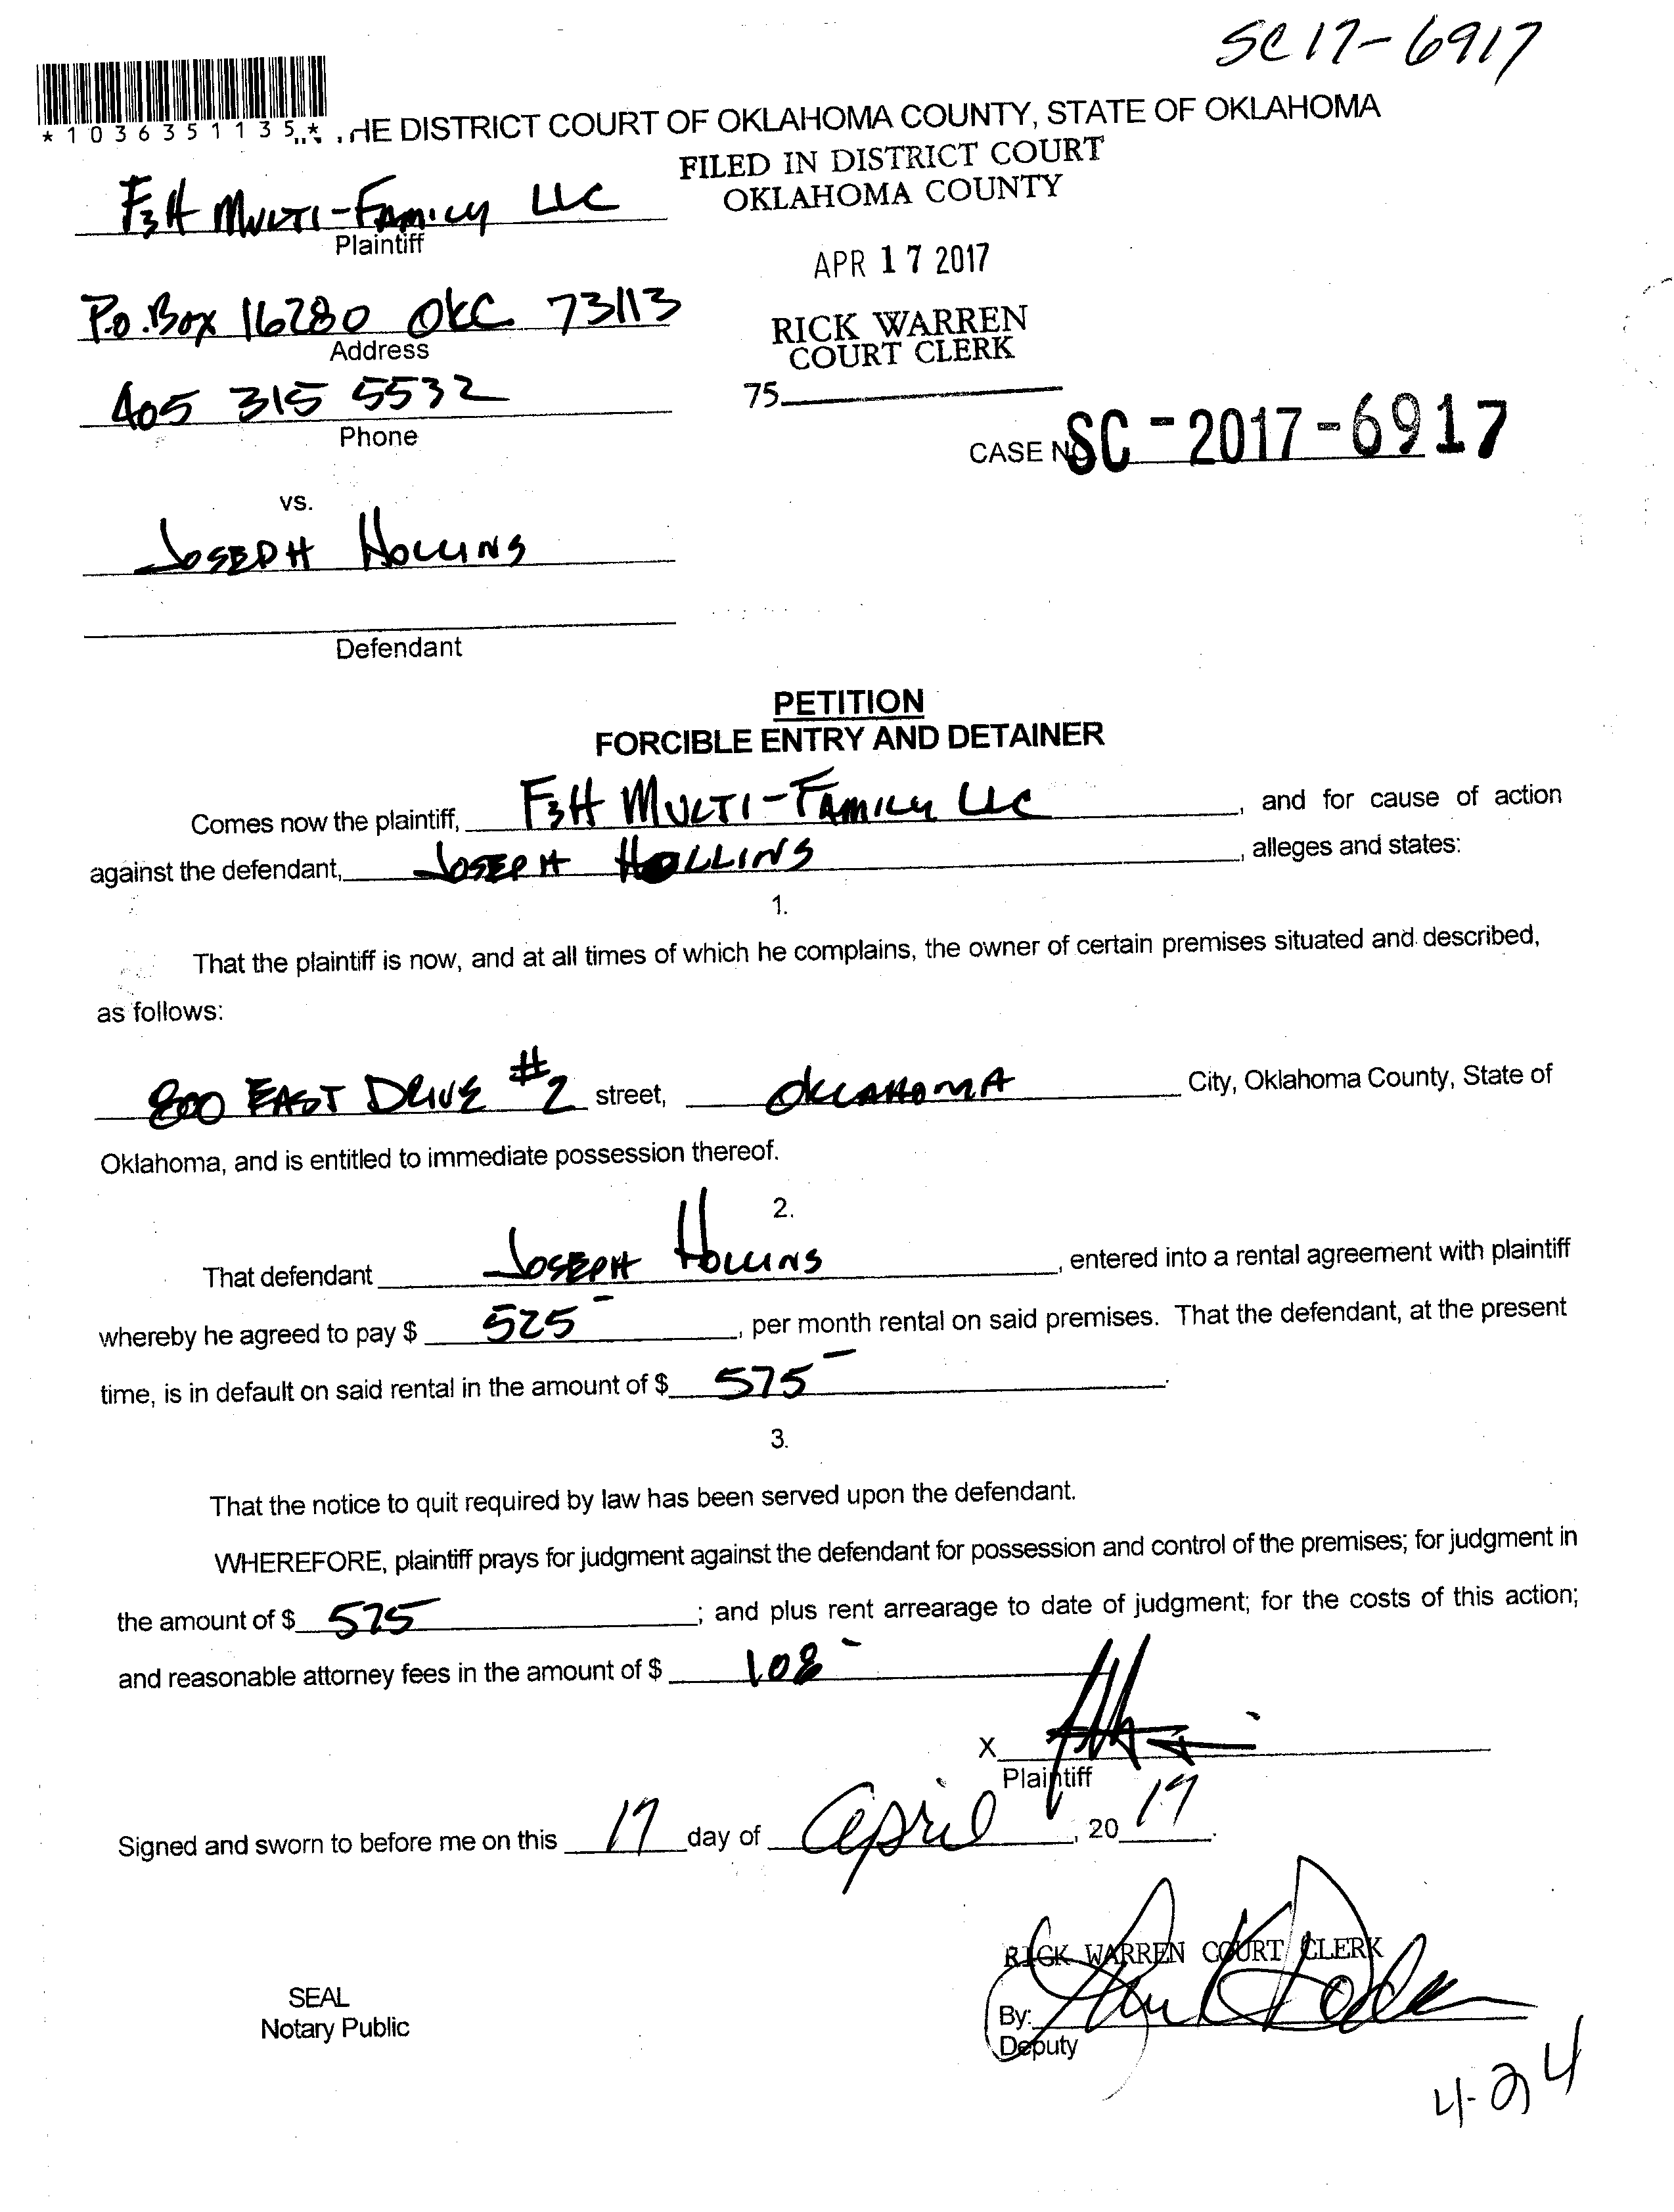 SC 17-6917
*1036351135* HE DISTRICT COURT OF OKLAHOMA COUNTY, STATE OF OKLAHOMA
FILED IN DISTRICT COURT
OKLAHOMA COUNTY
F3H MULTI-FAMILY LLC
Plaintiff
APR 17 2017
P.O. Box 16280 OKC 73113
Address
RICK WARREN
COURT CLERK
405 315 5532
Phone
75
CASE NO SC-2017-6917
vs.
JOSEPH HOLLINS
Defendant
PETITION
FORCIBLE ENTRY AND DETAINER
Comes now the plaintiff, F3H MULTI-FAMILY LLC, and for cause of action
against the defendant, JOSEPH HOLLINS, alleges and states:
1.
That the plaintiff is now, and at all times of which he complains, the owner of certain premises situated and described,
as follows:
800 EAST DRIVE #2 street, OKLAHOMA City, Oklahoma County, State of
Oklahoma, and is entitled to immediate possession thereof.
2.
That defendant JOSEPH HOLLINS, entered into a rental agreement with plaintiff
whereby he agreed to pay $ 525-, per month rental on said premises. That the defendant, at the present
time, is in default on said rental in the amount of $ 575-.
3.
That the notice to quit required by law has been served upon the defendant.
WHEREFORE, plaintiff prays for judgment against the defendant for possession and control of the premises; for judgment in
the amount of $ 575; and plus rent arrearage to date of judgment; for the costs of this action;
and reasonable attorney fees in the amount of $ 108-
X
Plaintiff
Signed and sworn to before me on this 17 day of April, 20 17.
RICK WARREN COURT CLERK
SEAL
Notary Public
By:
Deputy
4-24